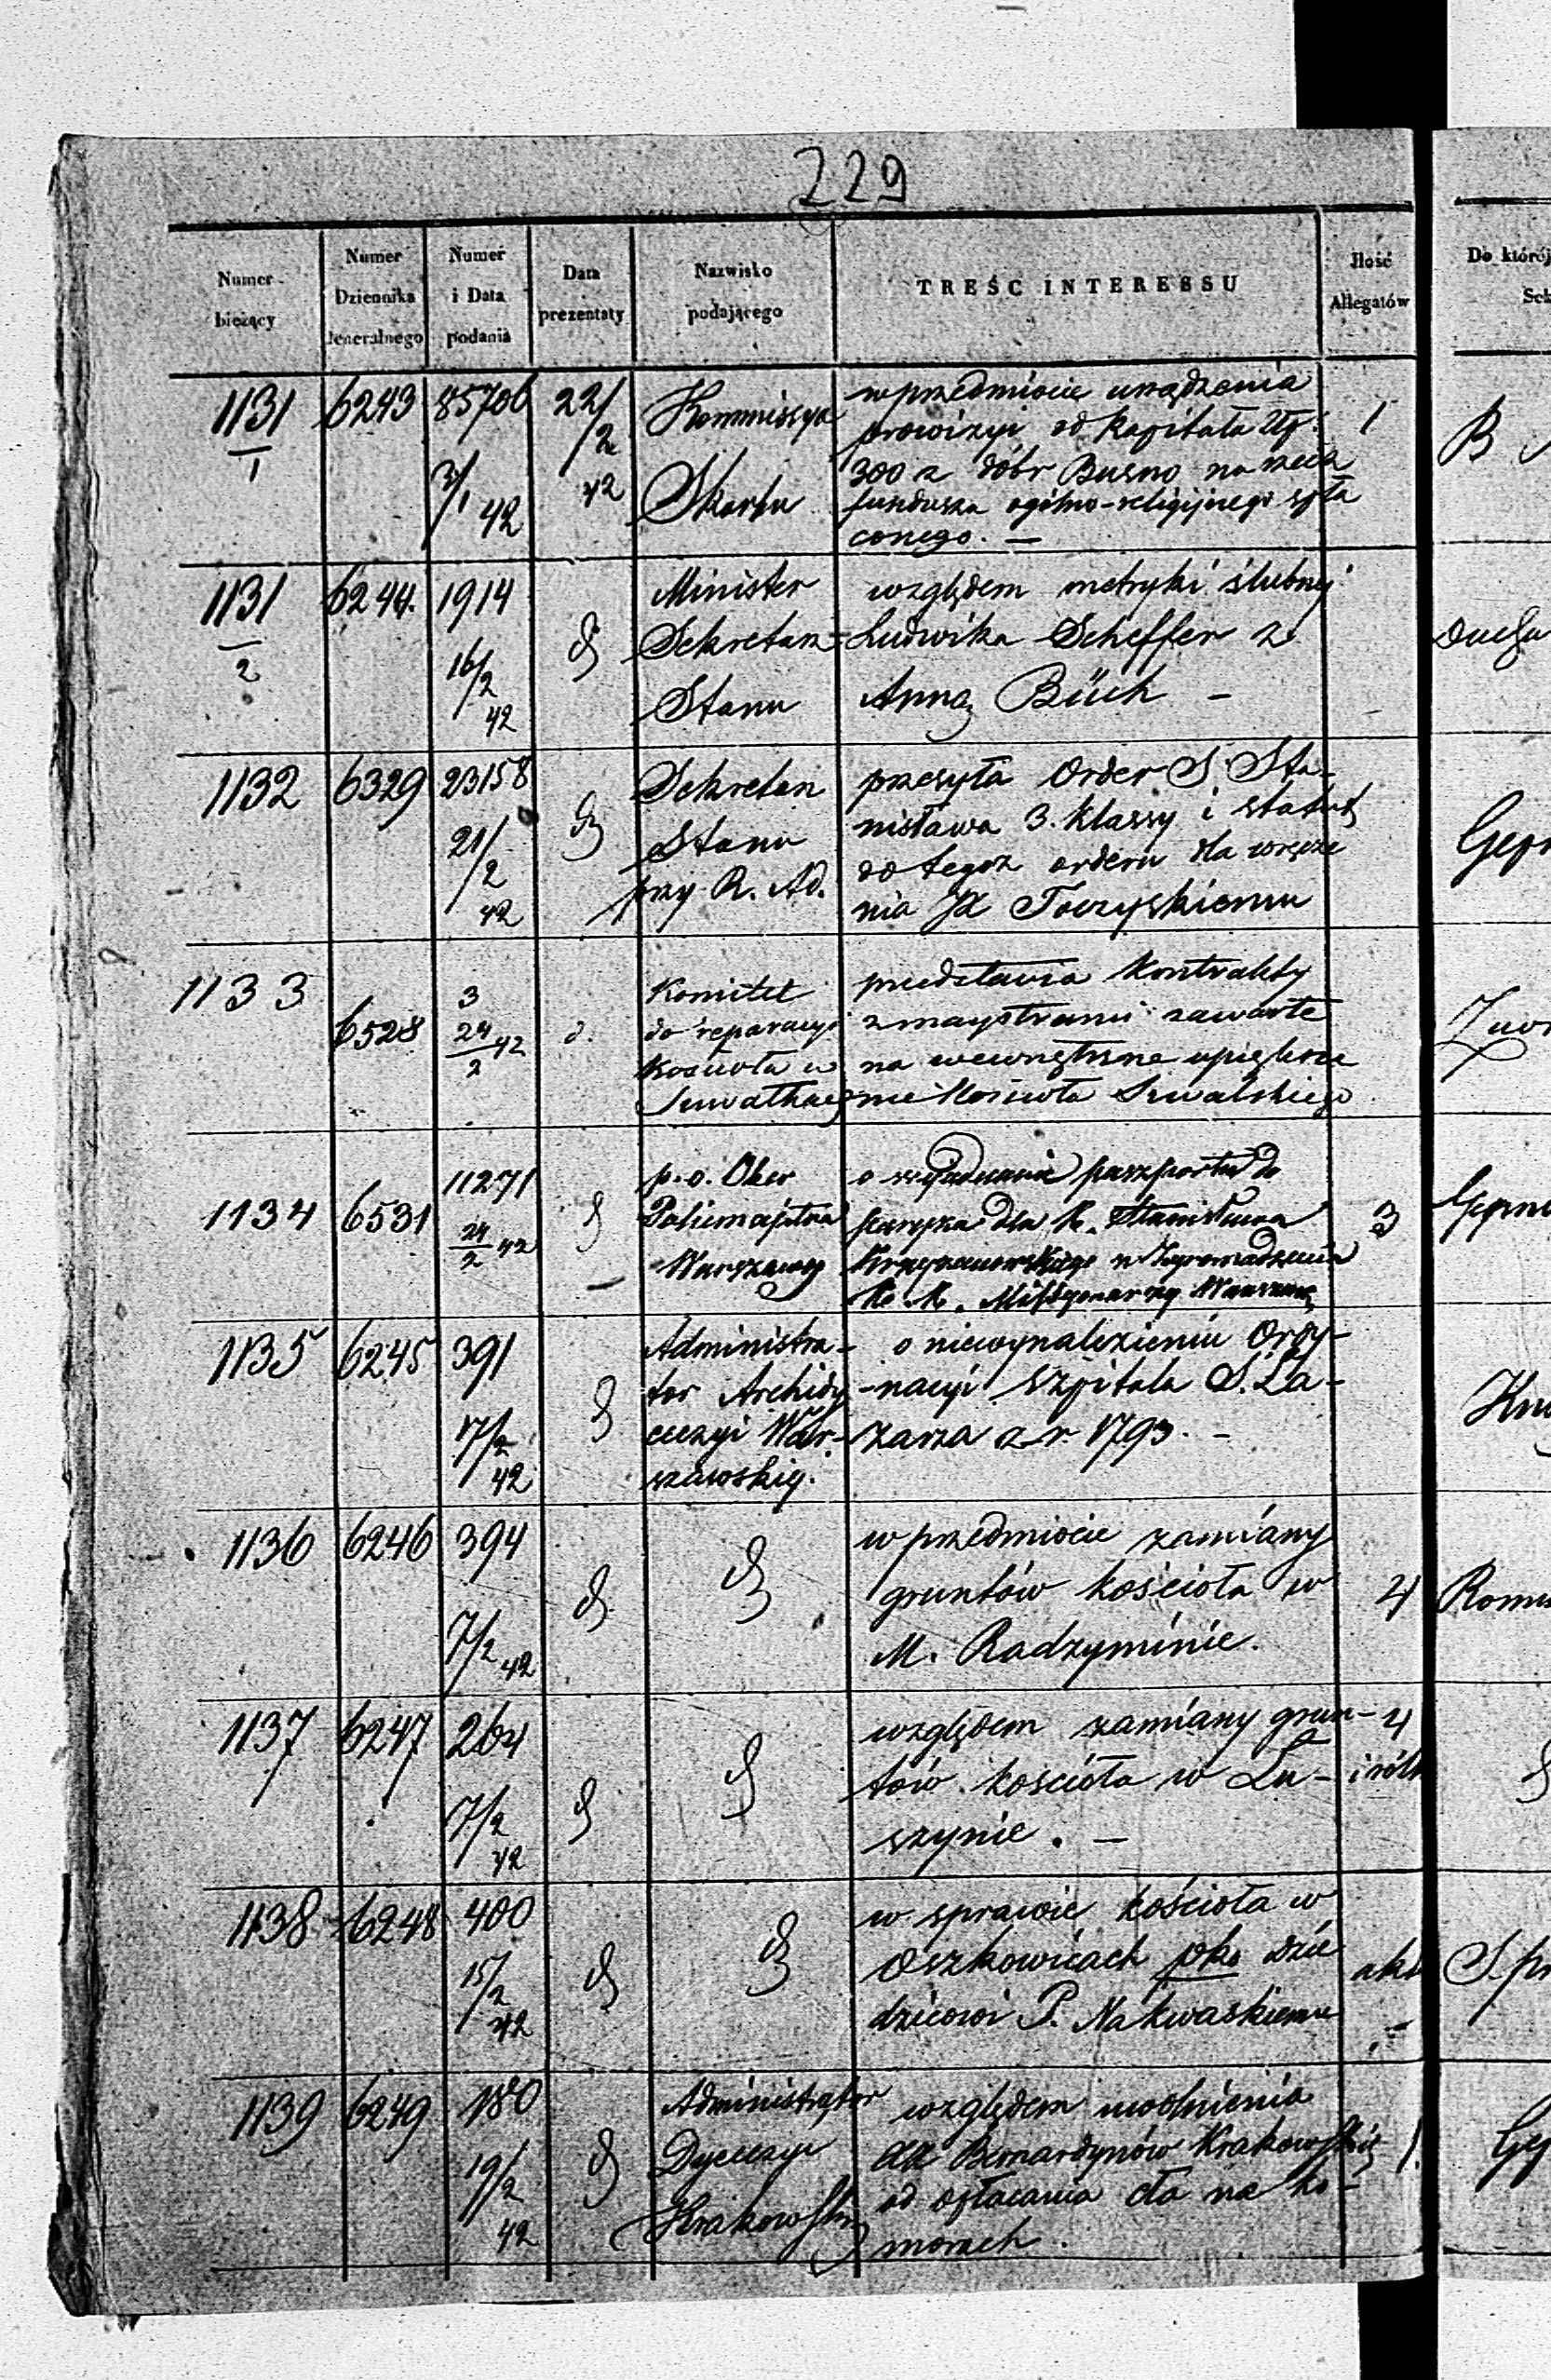 229
Numer bieżący
Numer Dziennika Jeneralnego
Numer i Data podania
Data prezentaty
Nazwisko podającego
TREŚĆ INTERESSU
Ilość Allegatów
Do której
1131/1 6243 85706 3/1 42 22/2 42
Kommissya
Skarbu
w przedmiocie urządzenia
prowizyi od kapitału Złp.
300 z dóbr Busno na rzecz
funduszu ogólno-religijnego spła
conego. —
1
B
1131/2 6244. 1914 16/2 42 d
Minister
Sekretarz
Stanu
względem metryki ślubnej
Ludwika Scheffer z
Anną Büch —
1132 6329 23158 21/2 42 d
Sekretarz
Stanu
przy R. Ad.
przesyła Order S. Sta-
nisława 3. klassy i statut
do tegoż orderu dla wręcze
nia JX Toczyskiemu
1133 6528 3 24/2 42 d.
Komitet
do reparacyi
Kościoła w
Suwałkach
przedstawia kontrakty
z maystrami zawarte
na wewnętrzne upiększe
nie Kościoła Suwalskiego
1134 6531 11271 24/2 42 d
p. o. Ober
Policmajstra
Warszawy
o wyjednanie paszportu do
Paryża dla X. Stanisława
Krzyżanowskiego w Zgromadzeniu
XX. Missyonarzy Warszaw.
3
1135 6245 391 17/2 42 d
Administra-
tor Archidy
ecezyi War-
szawskiej.
o niewynalezieniu Ordy-
-nacyi Szpitala S. Ła-
zarza z r. 1793. —
1136 6246 394 7/2 42 d d
w przedmiocie zamiany
gruntów kościoła w
M. Radzyminie.
4
1137 6247 264 7/2 42 d d
względem zamiany grun-
tów kościoła w Łu-
szynie. —
4
1138 6248 400 15/2 42 d d
w sprawie kościoła w
Oszkowicach pko dzie
dzicowi P. Nakwaskiemu
akt
1139 6249 180 19/2 42 d
Administrator
Dyecezyi
Krakowskiej
względem uwolnienia
XX Bernardynów Krakowskich
od opłacania cła na ko-
morach.
1.